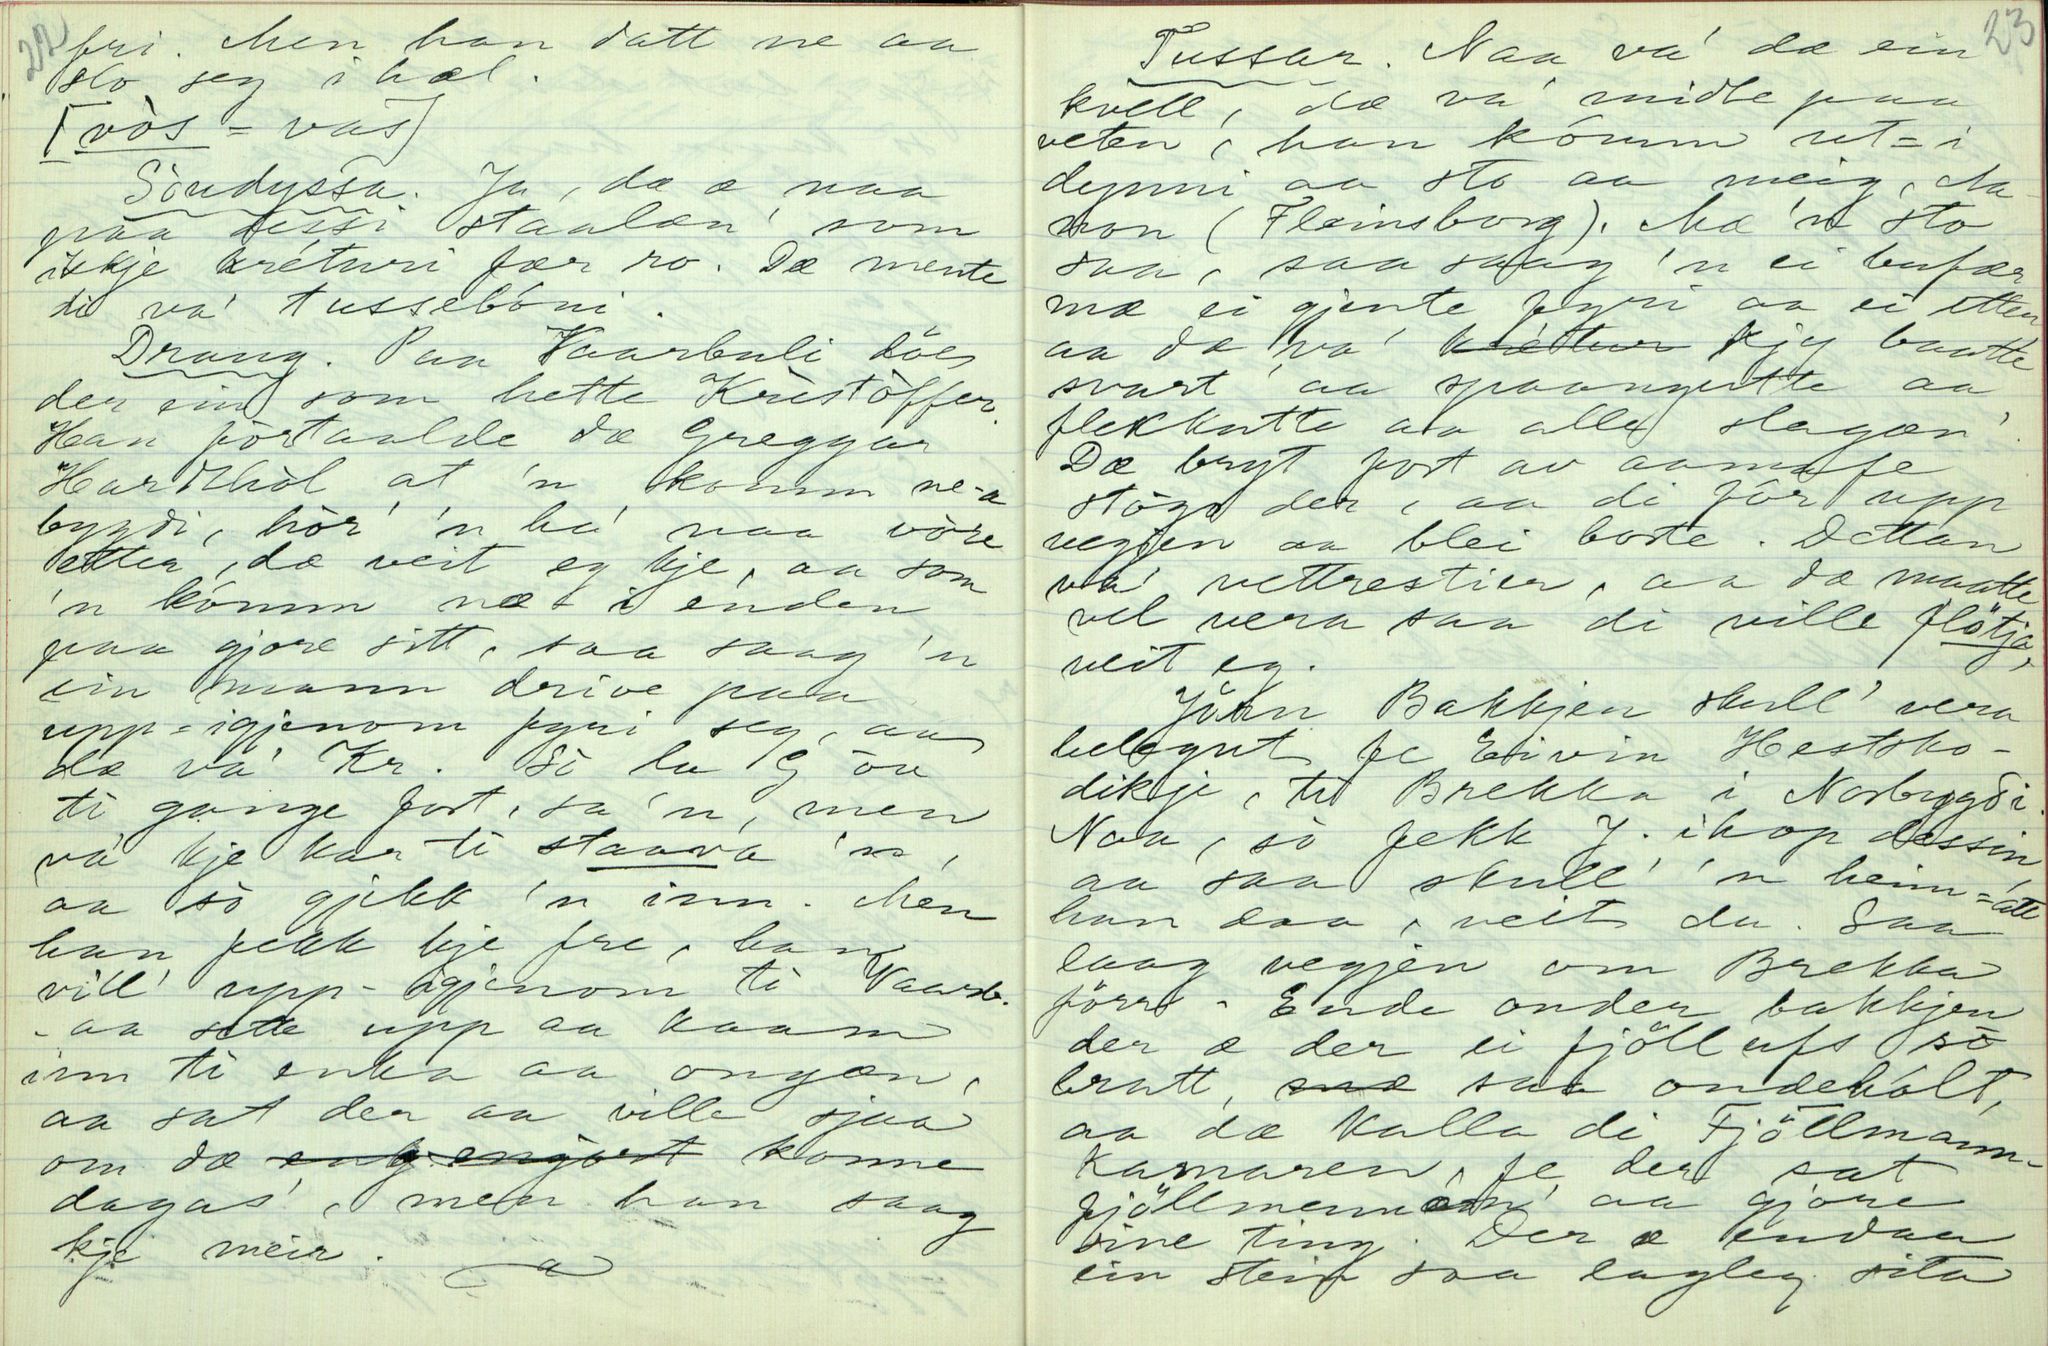 22
fri. Men han datt ne aa
slo seg ihæl.
[vòs = vas]
Söudyssa. Ja, dæ æ naa
paa dessi staalæn' som
ikkje kréturi fær ro. Dæ mente
di va' tussebóni.
Draug. Paa Vaarbuli döe
der ein som hette Krestòffer.
Han förtaalde dæ Greggar
Hardhòl at 'n komm ne-a
bygdi, hòr' 'n ha' naa vòre
etter, dæ veit eg kje, aa som
'n kómm næ i enden
paa gjore sitt, saa saag 'n
ein mann drive paa
upp-igjenom fyri seg, aa
dæ va' Kr. Sò la G ön
ti gange fort, sa 'n, men
va' kje kar ti staava 'n,
aa sò gjekk 'n inn. Men
han fekk kje fre, han
vill' upp-igjenom ti Vaarb.
- aa sette upp aa kaam
inn ti enka aa ongæn,
aa sat der aa ville sjaa
om dæ konne
dagas', men han saag
kje meir.
23
Tussar. Naa va' dæ ein
kvell, dæ va' midte paa
veten, han kómm ut-i
dynni aa sto aa meig, Ma-
non (Fleinsborg). Mæ 'n sto
saa, saa saag 'n ei bufær
mæ ei gjente fyri aa ei etter
aa dæ va' krétur kjy baatte
svart aa spaangutte aa
flekkutte aa alle slagæn'.
Dæ bryt fort av aamafe
stögo der, aa di fór upp
vegjen aa blei borte. Dettan
va' vettrestier, aa dæ maatte
vel vera saa di ville flötja,
veit eg.
Jörn Bakkjen skull' vera
belagut fe Eivin Hestsko-
dikje, ti Brekka i Norbygdi.
Naa, sò fekk J. ihop dessin
aa saa skull' 'n heim-atte
han daa, veit du. Saa
laag vegjen om Brekka
förr. Ende onder bakkjen
der æ der ei fjöllufs sò
bratt, saa ondehólt,
aa dæ kalla di Fjöllmann-
kamaren, fe der sat
fjöllmennæn' aa gjore
sine ting. Der æ endaa
ein stein saa lagleg sita